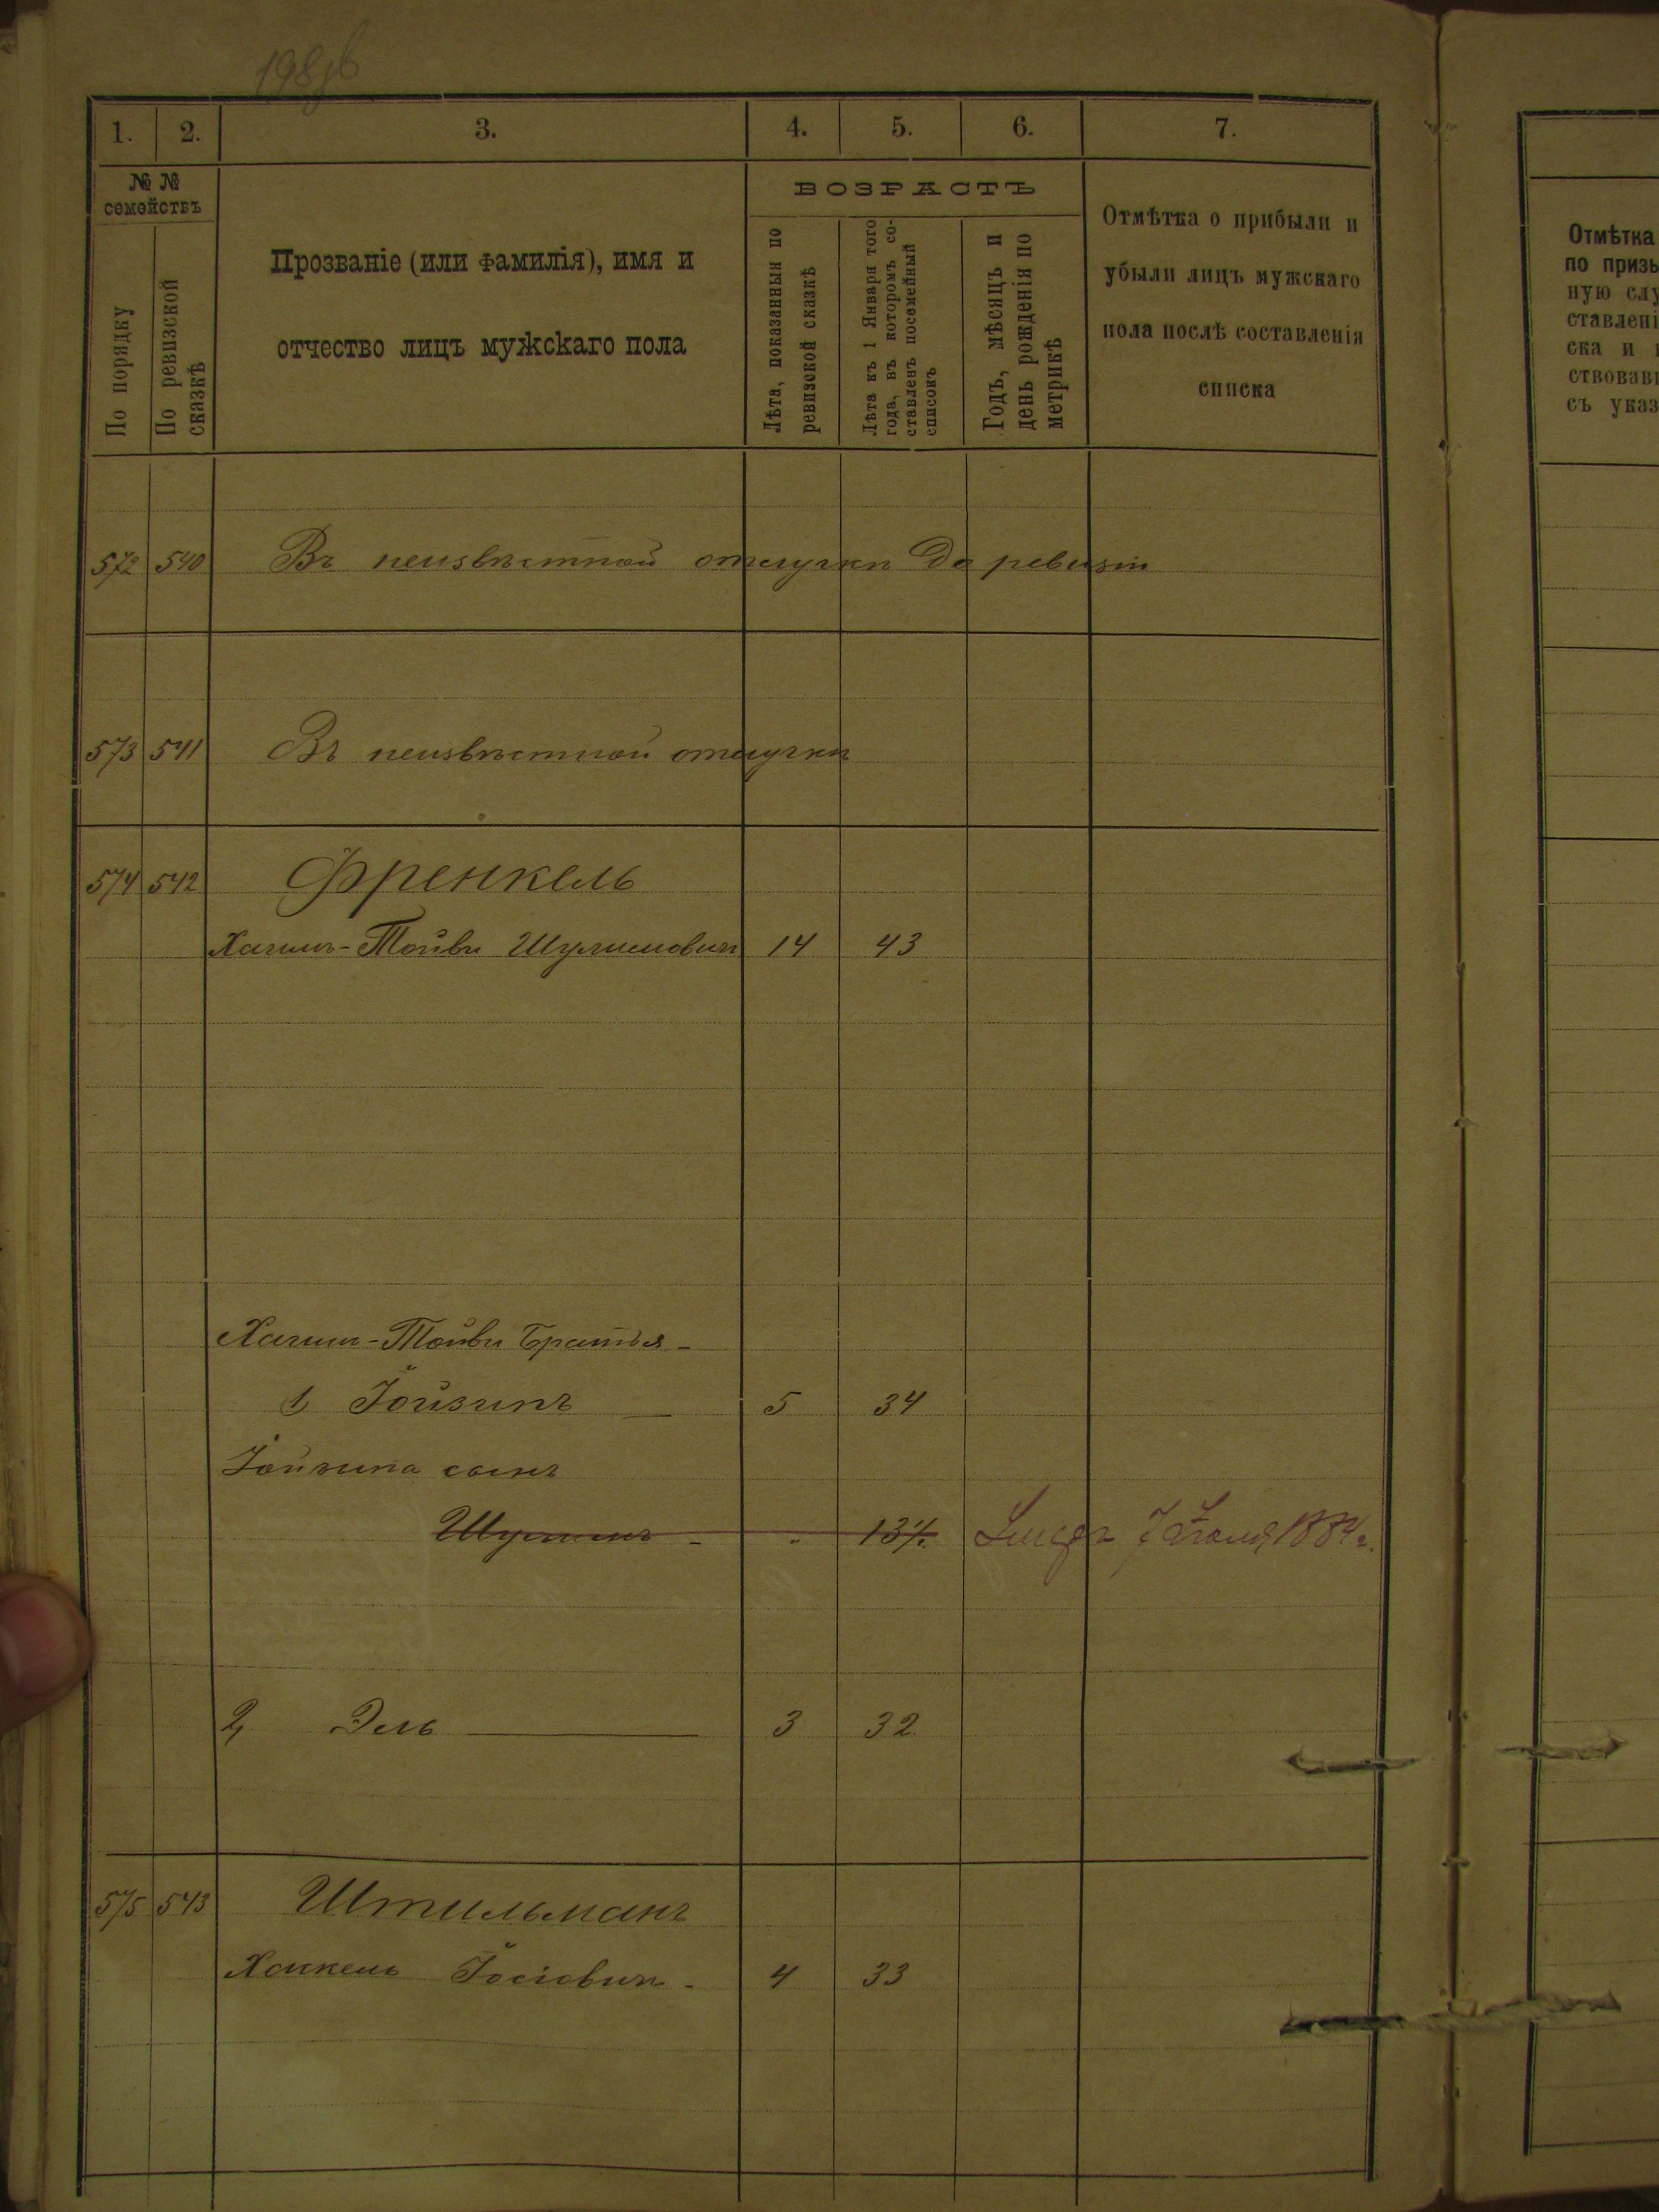 1. 2. 3. 4. 5. 6. 7.
№ №
семействъ
По порядку
По ревизской
сказкѣ
Прозваніе (или фамилія), имя и
отчество лицъ мужскаго пола
ВОЗРАСТЪ
Лѣта, показанныя по
ревизской сказкѣ
Лѣта къ 1 Января того
года, въ которомъ со-
ставленъ посемейный
списокъ
Годъ, мѣсяцъ и
день рожденія по
метрикѣ
Отмѣтка о прибыли и
убыли лицъ мужскаго
пола послѣ составленія
списка
572 540 Въ неизвѣстной отлучкѣ до ревизіи
573 541 Въ неизвѣстной отлучкѣ
574 542 Френкель
Хаимъ-Тойви Шулимовичъ 14 43
Хаимъ-Тойви братья -
1, Іойзипъ 5 34
Іойзипа сынъ
Шулимъ - 13½ 7 Іюля 1884 г.
2, Эль 3 32
575 543 Штильманъ
Хаскель Іосіовичъ - 4 33
Отмѣтка
по призы
ную слу
ставлені
ска и
ствовав
съ указ